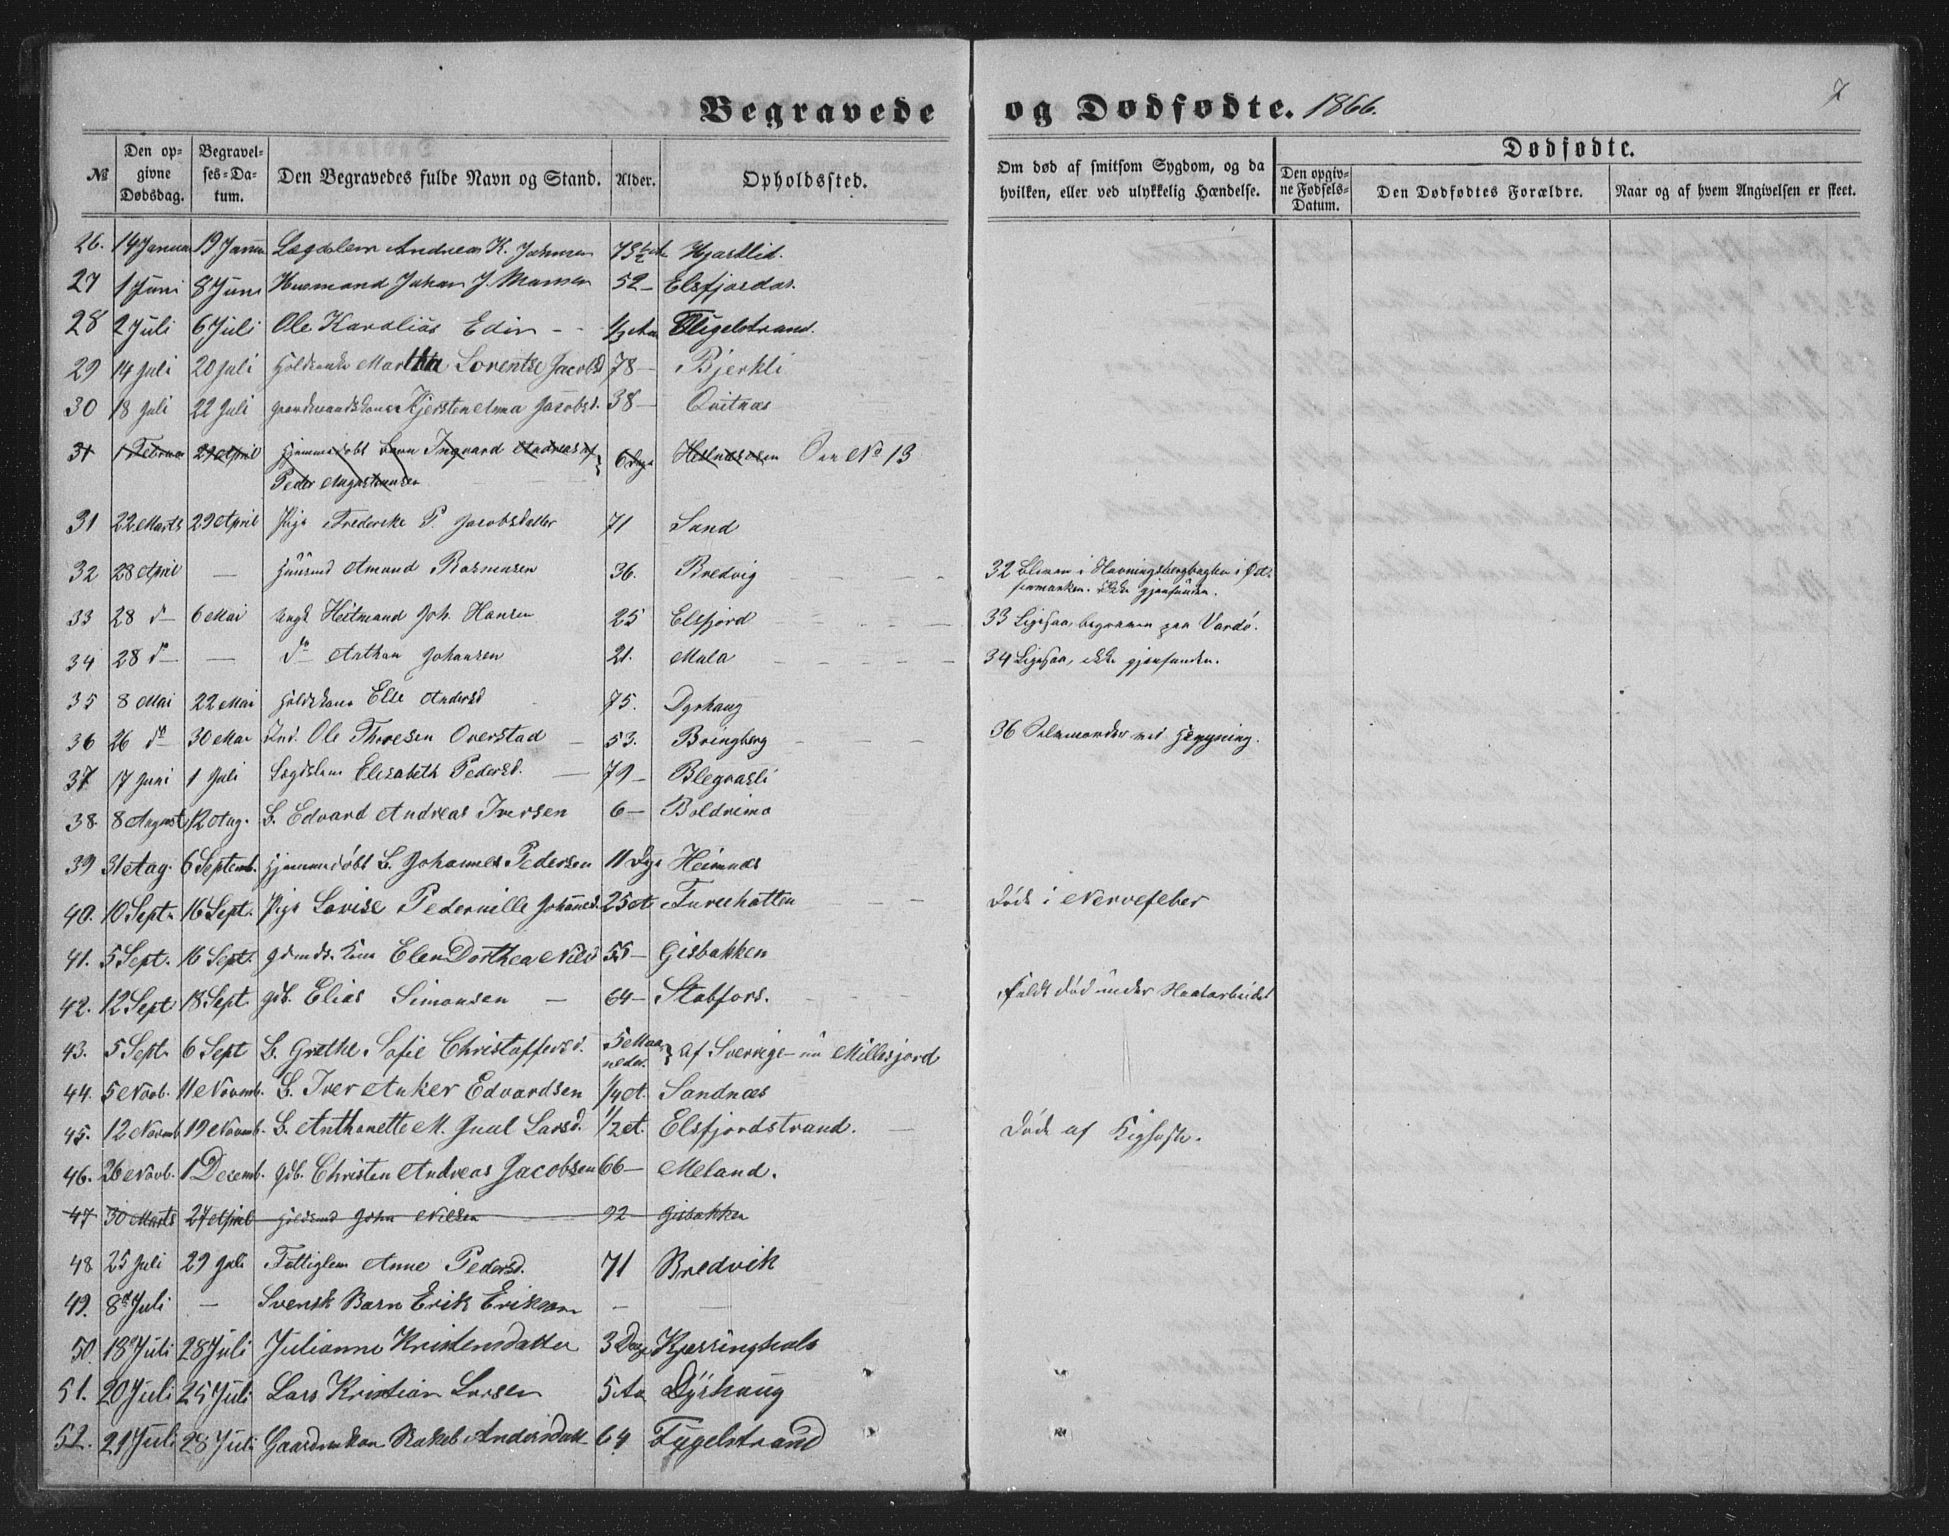 Begravede og Dødfødte. 1866. 7
№ Den opgivne Dødsdag. Begravelses-Datum. Den Begravedes fulde Navn og Stand. Alder. Opholdssted. Om død af smitsom Sygdom, og da hvilken, eller ved ulykkelig Hændelse. Dødfødte. Den opgivne Fødsels-Datum. Den Dødfødtes Forældre. Naar og af hvem Angivelsen er skeet.
26. 14 Januar 19 Januar Lægdslem Andreas K. Johnsen Hjartlid.
27 1 Juni 8 Juni Husmand Johan J. 52 – Elsfjorden.
28 2 Juli 6 Juli Ole Kardlias Edin – – Tligelstrand.
29 14 Juli 20 Juli Martha Lorentse Jacobsd 78 – Bjerkli
30 18 Juli 22 Juli Kjersten Anna Jacobsd. 38 – Qvitnæs
31 1 Februar 29 April Hjemmedøbt Barn Ingvard Andreas 6 Dage No 13
Peder Augustinussen
31 22 Marts 29 April Pige Frederike P. Jacobsdatter 71 Sand
32 28 April – Huusmd Amund Rasmussen 36. Bredvig 32 Bleven i Havningsbergbugten i Øst-
finmarken. Ikke gjenfunden.
33 28 do 6 Mai Ungk Heitmand Joh. Hansen 25 Elsfjord 33 Ligesaa, begraven paa Vardø.
34 28 do – do Anthon Johansen 21. Mula 34 Ligesaa, ikke gjenfunden.
35 8 Mai 22 Mai Else Andersd 75. Dyrhaug
36 26 do 30 Mai Ind. Ole Thoresen Overstad 53. Bringberg 36 Selvmorder ved Hængning.
37 17 Juni 1 Juli Lægdslem Elisabeth Pedersd. 79 – Blegvasli
38. 8 August 12 Aug. B. Edvard Andreas Iversen 6 – Boldrimo
39 31 Aug. 6 Septemb. Hjemmedøbt B. Johannes Pedersen 11 Dage Heimnæs
40. 10 Sept. 16 Sept. Pige Lovise Pedernille Johannesd. 25 A. Furuhatten Døde i Nervefeber
41. 5 Sept. 16 Sept. Gdmds. Kone Elen Dorthea Nilsd 55 – Gisbakken
42. 12 Sept 18 Sept. Gdb. Elias Simonsen – 64 – Stabfors. Faldt død under Høstarbeidet
43. 5 Sept. 6 Sept B. Grethe Sofie Christoffersd. 5 Maaneder. af Sverrige – nu Millesjord
44. 5 Novb. 11 Novemb. B. Iver Anker Edvardsen 1/4 A. Sandnæs
45. 12 Novemb 19 Novemb. B. Anthonette M. Juul Larsd. 1/2 A. Elsfjordstrand. – Døde af Kighoste.
46. 26 Novb. 1 Decemb. Gdb. Christen Andreas Jacobsen 66 – Meland.
47 30 Marts 27 April John Nilsen 92 Gisbakken
48 25 Juli 29 Juli Fattiglem Anne Pedersd. 71 Bredvik
49. 8de Juli – Svensk Barn Erik Erikson –
50. 18 Juli 28 Juli Julianne Kristensdatter 3 Dage Kjerringhals
51. 20 Juli 25 Juli Lars Kristian Larsen 5 Aar Dyrhaug
52. 21 Juli 28 Juli Rakel Andersdatt 64 Fygelstrand